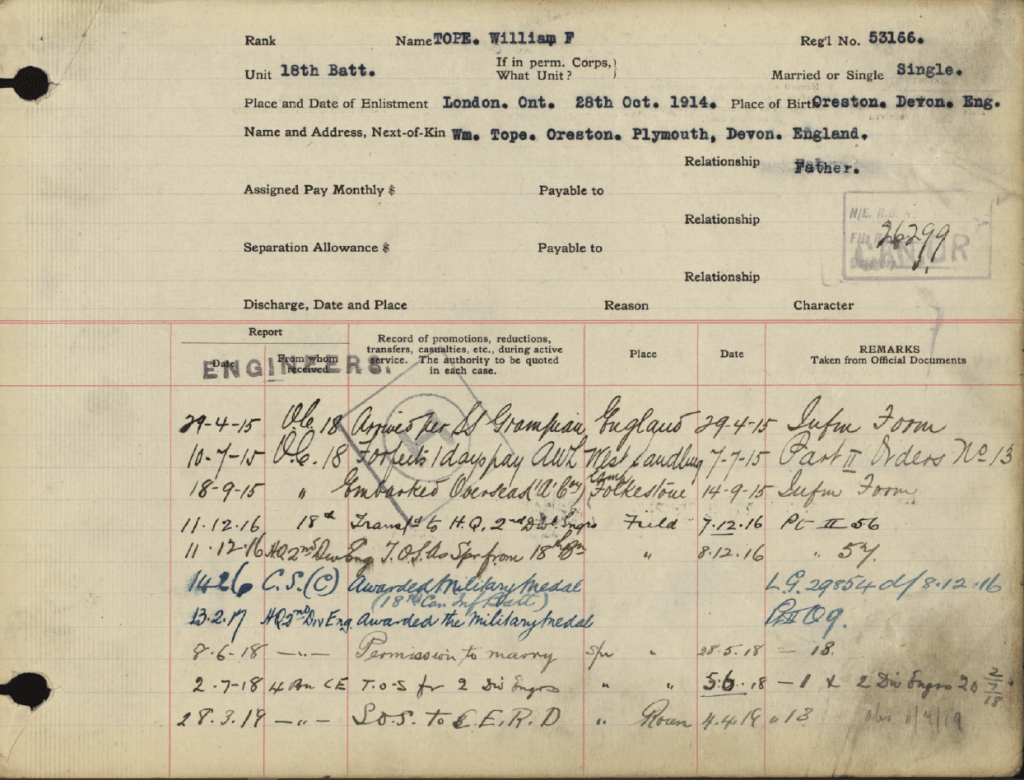 Rank Name TOPE. William F Reg'l No. 53166.
Unit 18th Batt. If in perm. Corps, What Unit? Married or Single Single.
Place and Date of Enlistment London. Ont. 28th Oct. 1914. Place of Birth Oreston. Devon. Eng.
Name and Address, Next-of-Kin Wm. Tope. Oreston. Plymouth, Devon. England.
Relationship Father.
Assigned Pay Monthly $ Payable to
Relationship
26299
CAN
Separation Allowance $ Payable to
Relationship
Discharge, Date and Place Reason Character
Report
Date From whom received Record of promotions, reductions, transfers, casualties, etc., during active service. The authority to be quoted in each case. Place Date REMARKS Taken from Official Documents
ENGINEERS.
29-4-15 O.C. 18 Arrived per SS Grampian England 29-4-15 Infm Form
10-7-15 O.C. 18 Forfeits 1 days pay AWL West Sandling Camp 7-7-15 Part II Orders No 13
18-9-15 " Embarked Overseas ('A' Coy) Folkestone 14-9-15 Infm Form
11.12.16 18th Transf'd to H.Q. 2nd Div'l Engrs Field 7.12.16 Pt II 56
11.12.16 HQ 2nd Div Eng T.O.S. as Spr from 18th Bn " 8.12.16 " 57
1426 C.S.(C) Awarded Military Medal L.G. 29854 d/ 8.12.16
(18th Can Inf Batt)
13.2.17 HQ 2nd Div Eng Awarded the Military Medal Pt II O 9.
8-6-18 —"— Permission to marry Spr " 28.5.18 — 18.
2-7-18 4 Bn C E T.O.S fr 2 Div Engrs " " 5.6.18 — 1 & 2 Div Engrs 20 2/7/18
28.3.19 —"— S.O.S. to C.E.R.D " Rouen 4.4.19 " 13